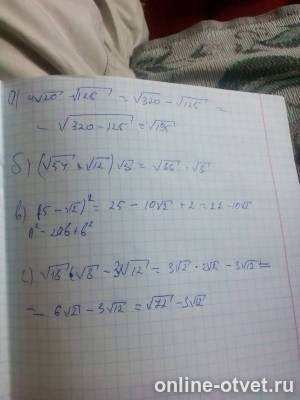 а) 4√20 - √125 = √320 - √125 =
= √320 - 125 = √195
б) (√54 √12) √3 = √3
в) (5 - √2)² = 25 - 10√2 + 2 =
a² - 2ab + b²
с) √18 √8 - 3√12 = 3√2 · 2√2 - 3√12 =
= 6√2 - 3√12 = √72 - 3√12
online-otvet.ru